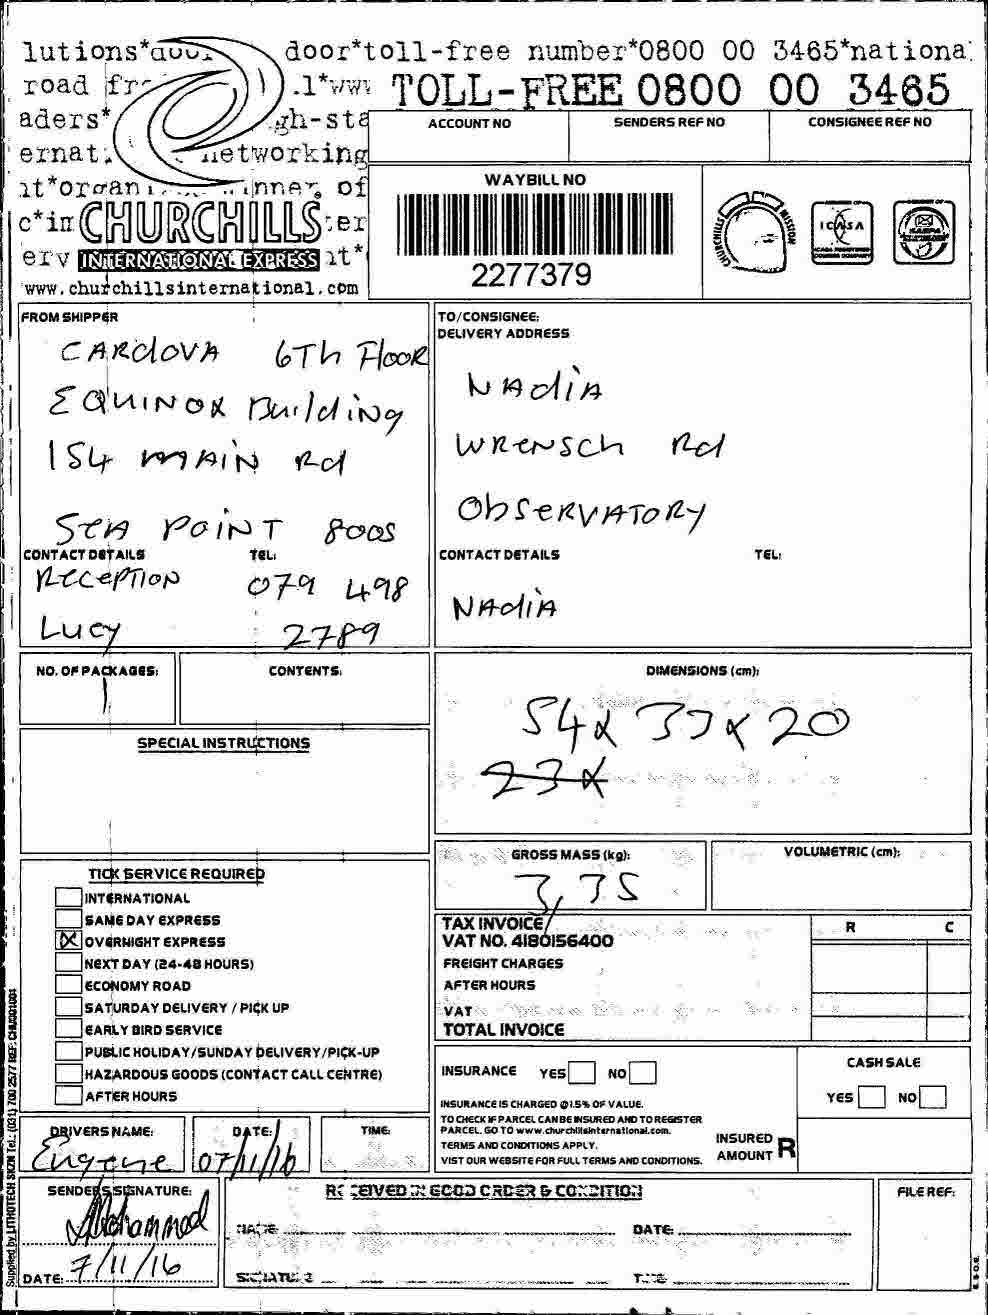 door*toll-free number*0800 00 3465*nationa
road
TOLL-FREE 0800 00 3465
aders*
ACCOUNT NO
SENDERS REF NO
CONSIGNEE REF NO
networking
WAYBILL NO
of
CHURCHILLS
INTERNATIONAL EXPRESS
2277379
CHURCHILLS MISSION
ICASA
www.churchillsinternational.com
FROM SHIPPER
CARdOVA 6Th FlooR
EQUINOX Building
154 mAIN Rd
SeA POINT 8005
CONTACT DETAILS TEL:
RecePTION 079 498
Lucy 2789
TO/CONSIGNEE:
DELIVERY ADDRESS
NAdiA
WRENSch Rd
ObSeRVATORy
CONTACT DETAILS TEL:
NAdiA
NO. OF PACKAGES:
1
CONTENTS:
DIMENSIONS (cm):
54x 33 x 20
23x
SPECIAL INSTRUCTIONS
GROSS MASS (kg):
3,35
VOLUMETRIC (cm):
TICK SERVICE REQUIRED
INTERNATIONAL
SAME DAY EXPRESS
OVERNIGHT EXPRESS
NEXT DAY (24-48 HOURS)
ECONOMY ROAD
SATURDAY DELIVERY / PICK UP
EARLY BIRD SERVICE
PUBLIC HOLIDAY/SUNDAY DELIVERY/PICK-UP
HAZARDOUS GOODS (CONTACT CALL CENTRE)
AFTER HOURS
TAX INVOICE
VAT NO. 4180156400
R C
FREIGHT CHARGES
AFTER HOURS
VAT
TOTAL INVOICE
INSURANCE YES NO
INSURANCE IS CHARGED @1.5% OF VALUE.
TO CHECK IF PARCEL CAN BE INSURED AND TO REGISTER
PARCEL. GO TO www.churchillsinternational.com.
TERMS AND CONDITIONS APPLY.
VIST OUR WEBSITE FOR FULL TERMS AND CONDITIONS.
CASH SALE
YES NO
INSURED
AMOUNT R
DRIVERS NAME:
Eugene
DATE:
07/11/16
TIME:
SENDERS SIGNATURE:
Mohammed
DATE: 7/11/16
RECEIVED IN GOOD ORDER & CONDITION
NAME: DATE:
SIGNATURE TIME
FILE REF:
Supplied by LITHOTECH SKZN Tel.: (031) 700 2577 REF: CHU001001